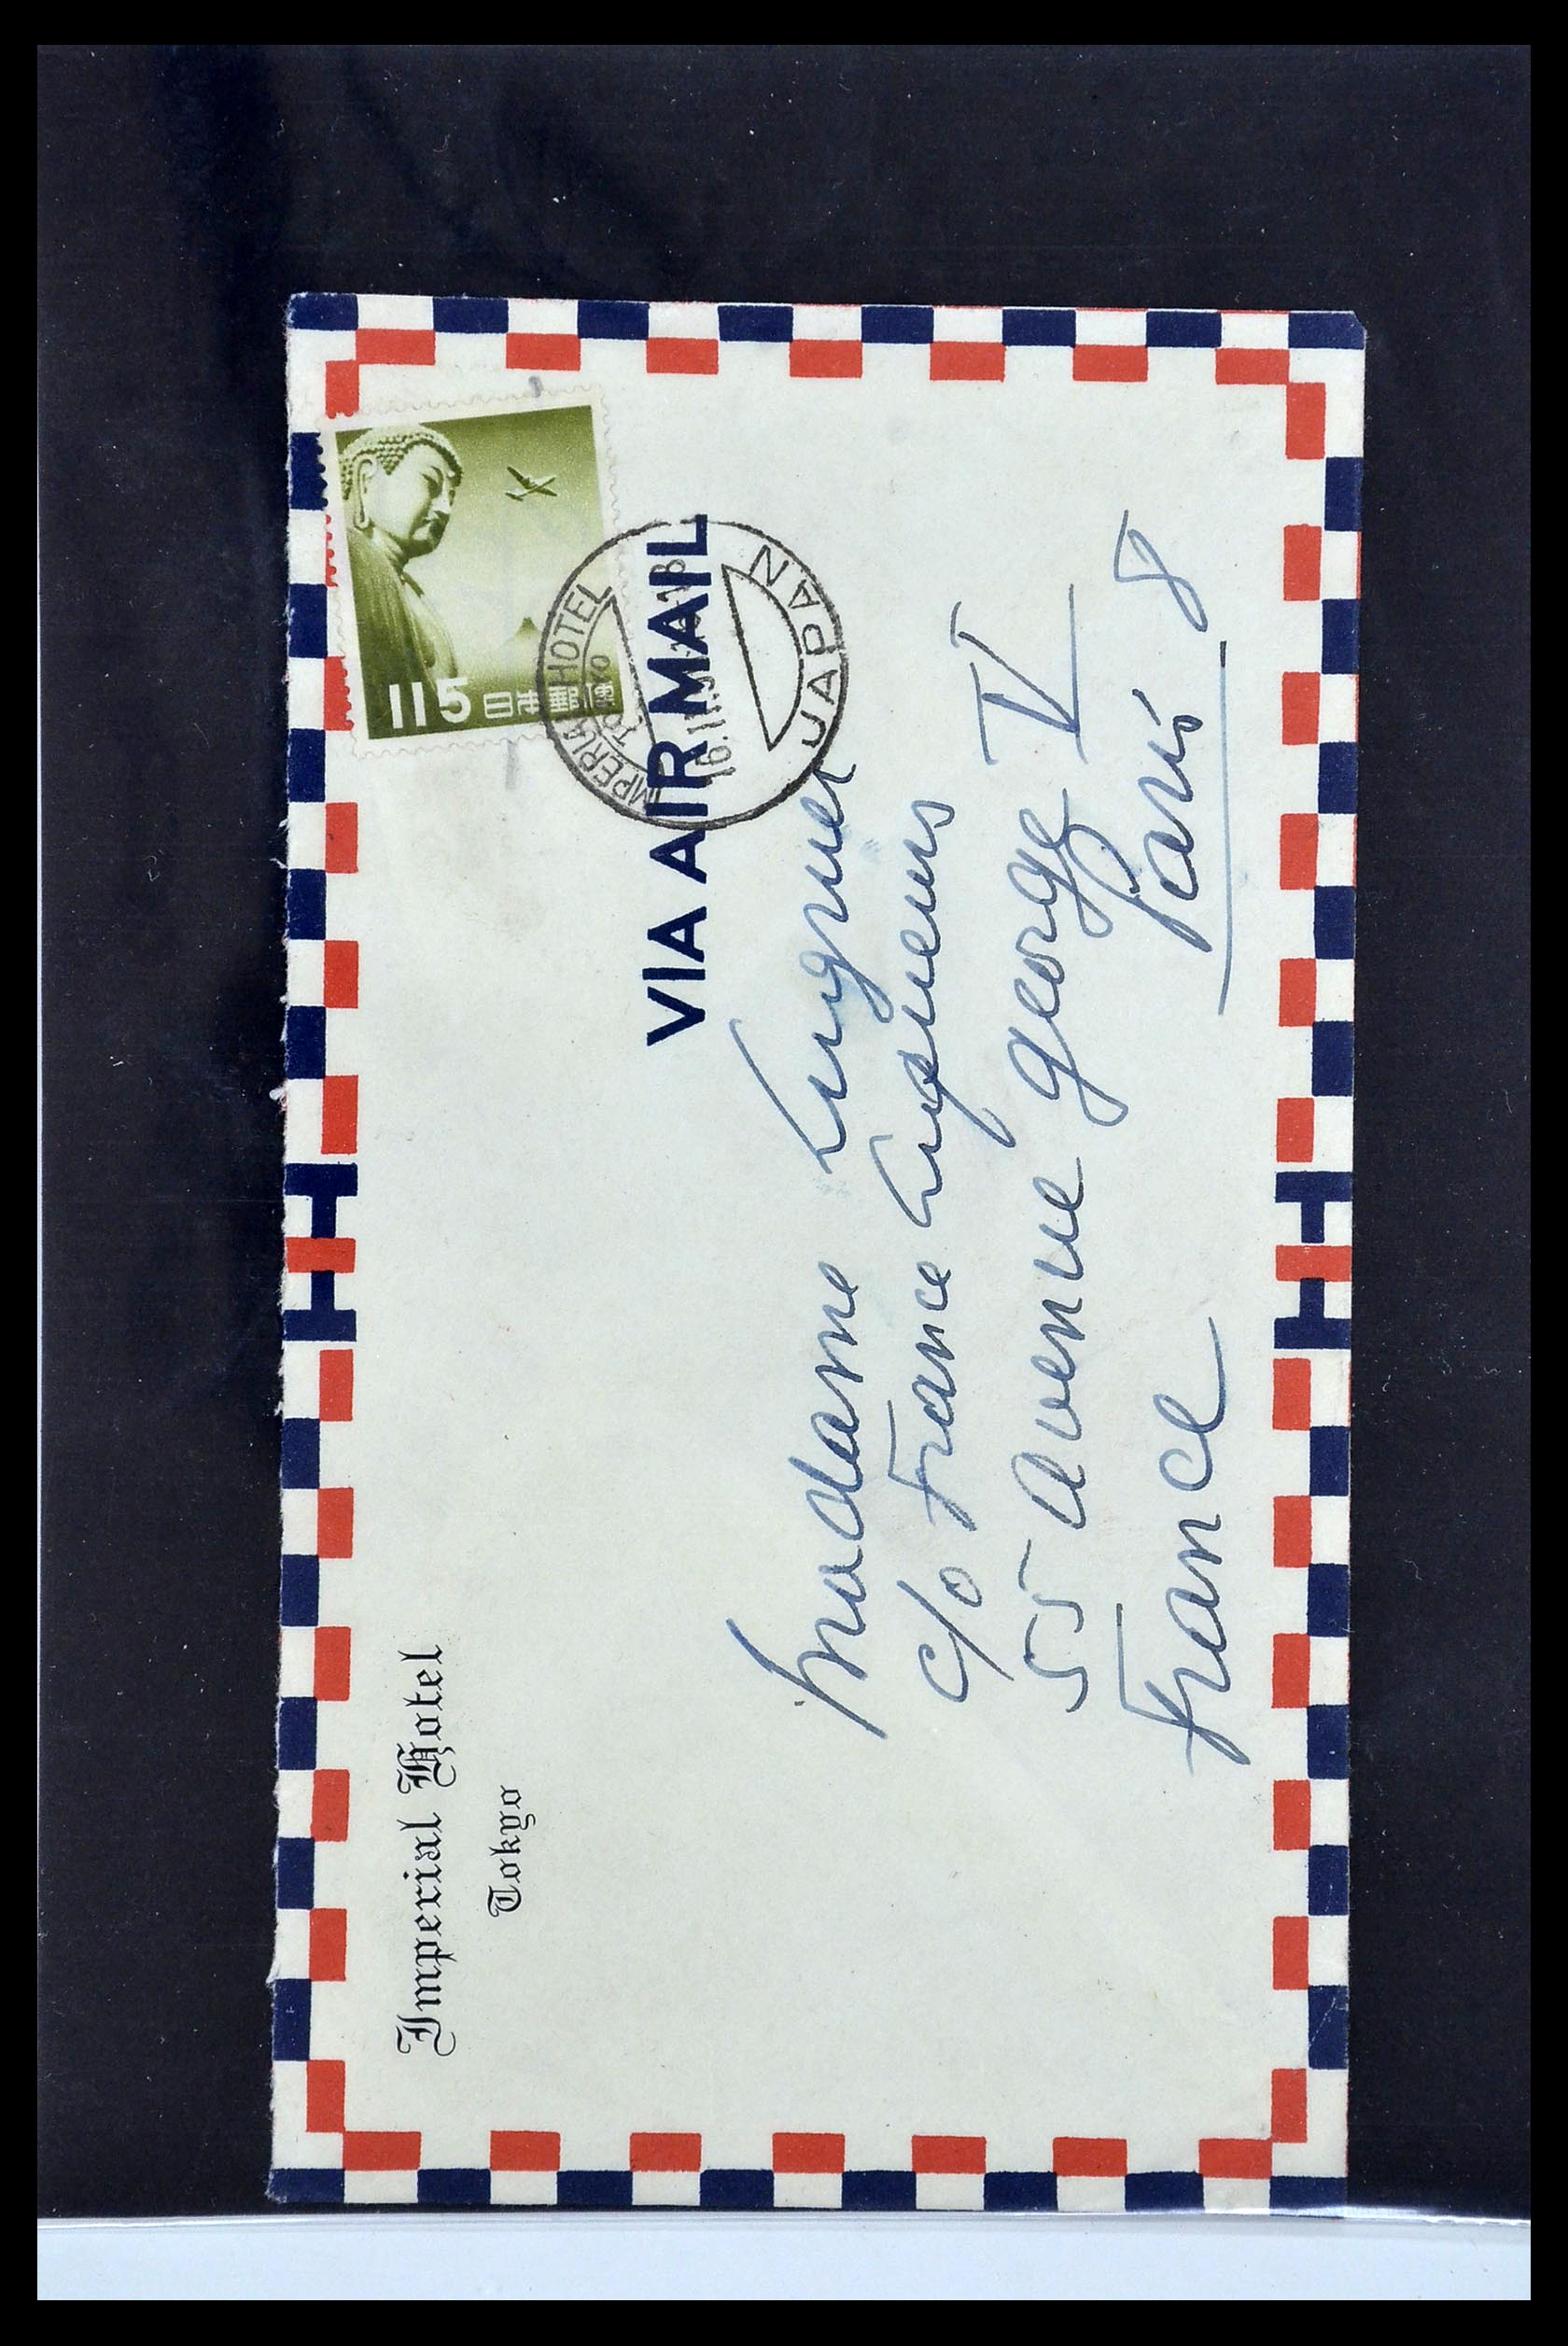 Imperial Hotel
Tokyo
115 日本郵便
IMPERIAL HOTEL
TOKYO
JAPAN
VIA AIR MAIL
Madame
c/o France
55 Avenue George V
Paris 8
France